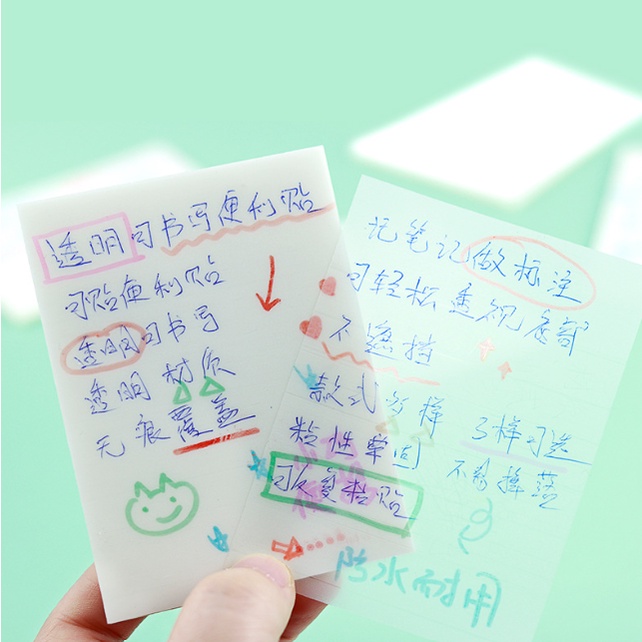 透明可书写便利贴
可贴便利贴
透明可书写
透明材质
无痕覆盖
记笔记做标注
可轻松透视底部
不遮挡
款式多样
多样可选
粘性牢固
不易掉落
可反复粘贴
防水耐用